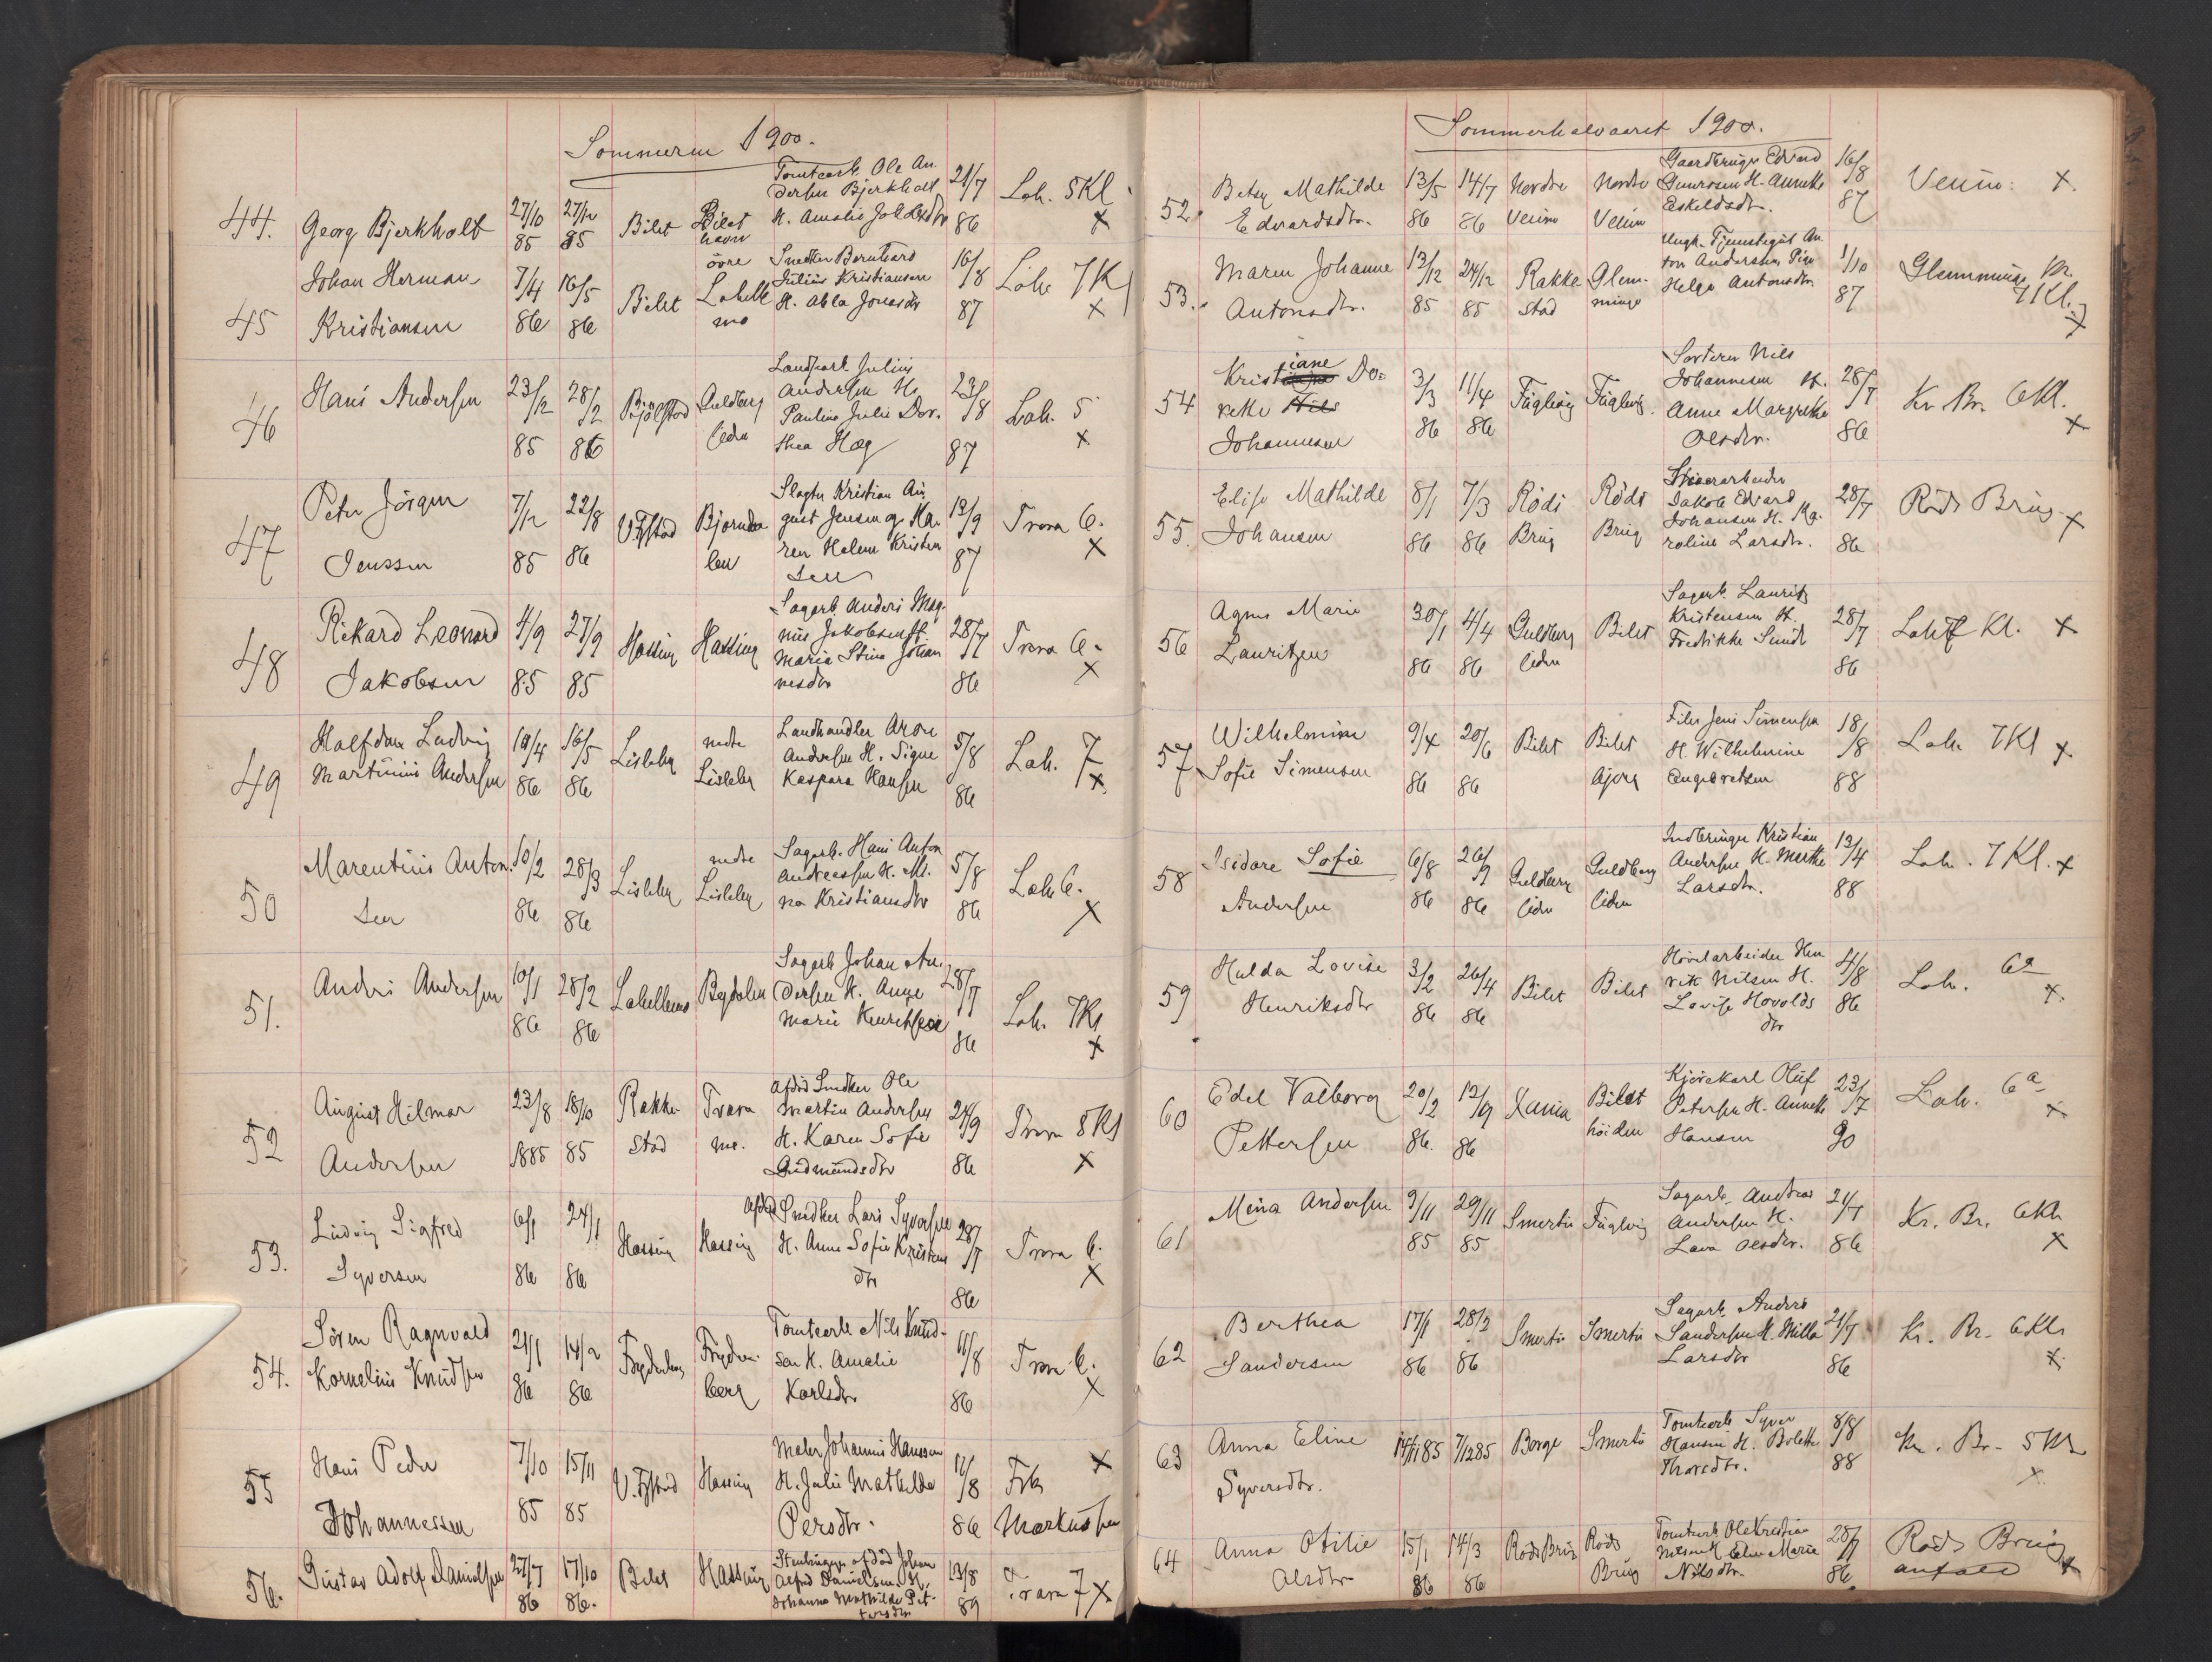 Sommeren 1900.
44. Georg Bjerkholt 27/10 85 27/12 85 Bilet Bilet havn Tomtearb. Ole An. dersen Bjerkholt H. Amalie 21/7 86 Lah. 5Kl X
45 Johan Herman Kristiansen 7/4 86 16/5 86 Bilet övre Labelle mo Snedker Bernthard Julius Kristiansen H. Abla Jonasdtr 16/8 87 Lah. 7K X
46 Hans Andersen 23/12 85 28/2 86 Bjölstad Guldberg liden Landarb. Julius Andersen H. Pauline Julie Dor. thea Hog 23/8 87 Lah. 5 X
47 Peter Jörgen Jenssen 7/12 85 22/8 86 Bjornda len Slagter Kristian Au. gust Jensen og Ka. ren Helene Kristen sen 12/9 87 Trara 6. X
48 Rikard Leonard Jakobsen 4/9 85 27/9 85 Hassing Hassing Sagarb. Anders Mag. nus Jakobsen H. Maria Stina Johan nesdtr 28/7 86 Trara 6. X
49 Halfdan Ludvig Martinius Andersen 19/4 86 16/5 86 Lisleby nedre Lisleby Landhandler Aron Andersen H. Signe Kaspara Hansen 5/8 86 Lah. 7 X
50 Marentius Anton. sen 10/2 86 28/3 86 Lisleby nedre Lisleby Sagarb. Hans Anton Andreassen H. Mi. na Kristiansdtr 5/8 86 Lah 6. X
51. Anders Andersen 10/1 86 28/2 86 Labellemo Bydalen Sagarb Johan An. dersen H. Ange Marie 28/7 86 Lah. 7Kl X
52 August Hilmar Andersen 23/8 1885 18/10 85 Rakke stad Trara mo. Afdöd Snedker Ole Martin Andersen H. Karen Sofie Gudmundsdtr 24/9 86 Trara 8Kl X
53. Ludvig Sigfred Syversen 6/1 86 24/1 86 Hassing Hassing Afdöd Snedker Lars Syversen H. Anne Sofie Kristens dtr 28/7 86 Trara 6. X
54. Sören Ragnvald Kornelius Knudsen 21/1 86 14/2 86 Frydenberg Fryden berg Tomtearb Nils Knud- sen H. Amalie Karlsdtr 11/8 86 Trara 6. X
55 Hans Peder Johannessen 7/10 85 15/11 85 Hassing Maler Johannes Hanssen H. Julie Mathilde Persdtr. 11/8 86 Frk Markussen X
56. Gustav Adolf Danielsen 27/7 86 17/10 86. Bilet Hassing afdöd Johan Alfred Danielsen. H. Johanne Mathilde Pet- tersdtr 13/8 89 Trara 7 X
Sommerhalvaaret 1900.
52. Betsy Mathilde Edvardsdtr. 13/5 86 14/7 86 Nordre Veum Nordre Veum Gaardbruger Edvard Gunersen H. Annette Eskeldsdtr. 16/8 87 Veum. X.
53. Maren Johanne Antonsdtr. 13/12 85 24/12 85 Rakke stad Glem- minge Ungk. Tjenestegut An. ton Andersen Pige Helga Antonsdtr. 1/10 87 Glemminge 7 Kl. X
54 Kristiane Do= rethe Nils Johannesen 3/3 86 11/4 86 Fuglevig Fuglevig. Nils Johannesen H. Anne Margrethe Olsdtr. 28/7 86 Kr Br. 6Kl. X
55. Elise Mathilde Johansen 8/1 86 7/3 86 Röds Brug Röds Brug Jakob Edvard Johansen H. Ka. roline Larsdtr. 28/7 86 Röds Brug. X
56 Agnes Marie Lauritzen 30/1 86 4/4 86 Guldberg liden Bilet Sagarb. Lauritz Kristensen H. Fredrikke Sundt 28/7 86 Lah 7 Kl. X
57 Wilhelmine Sofie Simensen 9/4 86 20/6 86 Bilet Bilet bjerg Filer Jens Simensen H. Wilhelmine Engebretsen 18/8 88 Lah. 7Kl X.
58 Isidore Sofie Andersen 6/8 86 26/9 86 Guldberg liden Guldberg liden Indbringer Kristian Andersen H. Marthe Larsdtr. 13/4 88 Lah. 7 Kl. X
59 Hulda Lovise Henriksdtr 3/2 86 26/4 86 Bilet Bilet Hövelarbeider Hen rik Nilsen H. Lovise Hovolds dtr 4/8 86 Lah. 6a X.
60 Edel Valborg Pettersen 20/2 86. 12/9 86 Xania Bilet höiden Kjörekarl Oluf Petersen H. Annette Hansen 23/7 90 Lah. 6a X
61 Mina Andersen 9/11 85 29/11 85 Smertu Fuglevig Sagarb. Andreas Andersen H. Lava Olsdtr. 21/7 86 Kr. Br. 6Kl. X
62 Berthea Sandersen 17/1 86 28/2 86 Smertu Smertu Sagarb. Anders Sandersen H. Milla Larsdtr 21/7 86 Kr. Br. 6Kl. X.
63 Anna Eline Syversdtr. 14/11 85 7/12 85 Borge Smertu Tomtearb Syver Hansen H. Bolette Thorsdtr. 8/8 88 Kr. Br. 5Kl X.
64 Anna Otilie Olsdtr 15/1 86 14/3 86 Röds Brug Röds Brug Tomtearb Ole Kristian Nilsen H Eline Marie Nilsdtr. 28/7 86. Röds Brug X